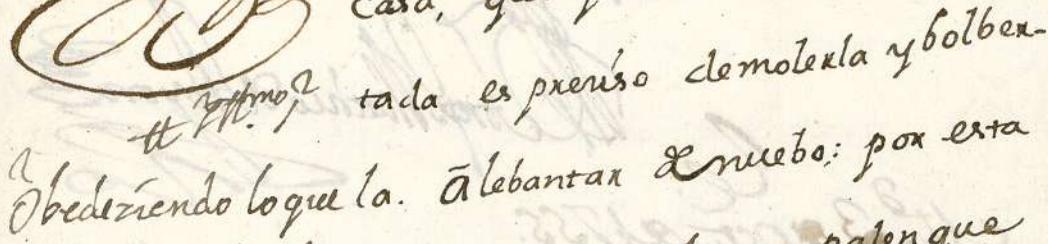 casa,
Yllmo. S.r tada es presiso demolerla y bolber-
Obedeziendo lo que la. â lebantar de nuebo: por esta
palenque